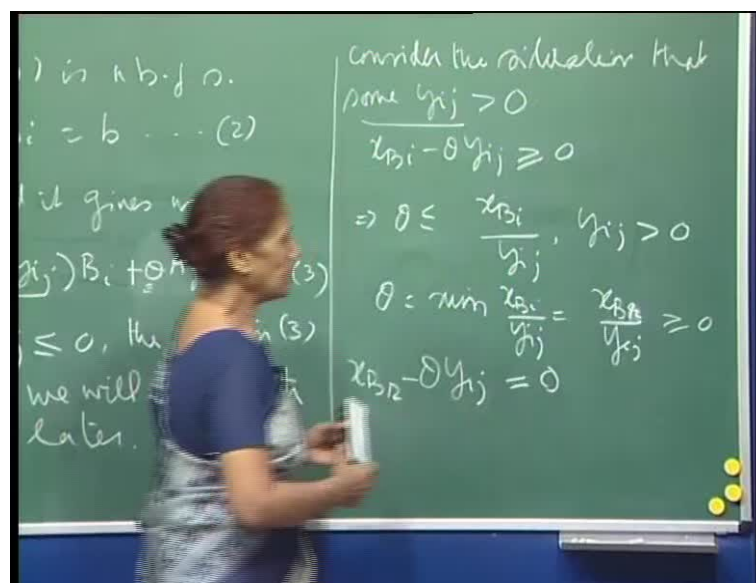 ) is a b.f s.
i = b ---- (2)
it gives
ij) Bi + θ (3)
≤ 0, the in (3)
we will
later.
consider the situation that
some yij > 0
xBi - θ yij ≥ 0
⇒ θ ≤ xBi / yij , yij > 0
θ = min xBi / yij = xBr / yij ≥ 0
xBr - θ yij = 0